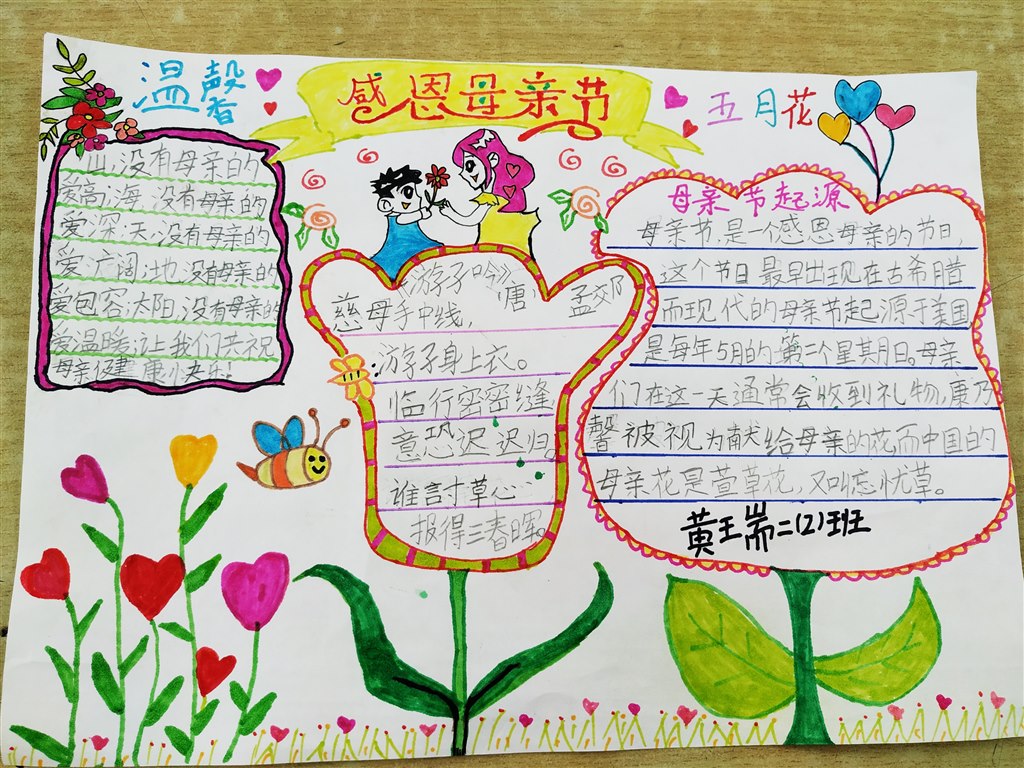 温馨
感恩母亲节
五月花
山,没有母亲的
爱高,海,没有母亲的
爱深,天,没有母亲的
爱广阔,地,没有母亲的
爱包容,太阳,没有母亲的
爱温暖,让我们共祝
母亲健康快乐!
《游子吟》
唐 孟郊
慈母手中线,
游子身上衣。
临行密密缝
意恐迟迟归。
谁言寸草心
报得三春晖。
母亲节起源
母亲节,是一个感恩母亲的节日,
这个节日最早出现在古希腊
而现代的母亲节起源于美国
是每年5月的第二个星期日。母亲
们在这一天通常会收到礼物,康乃
馨被视为献给母亲的花而中国的
母亲花是萱草花,又叫忘忧草。
黄王耑二(2)班